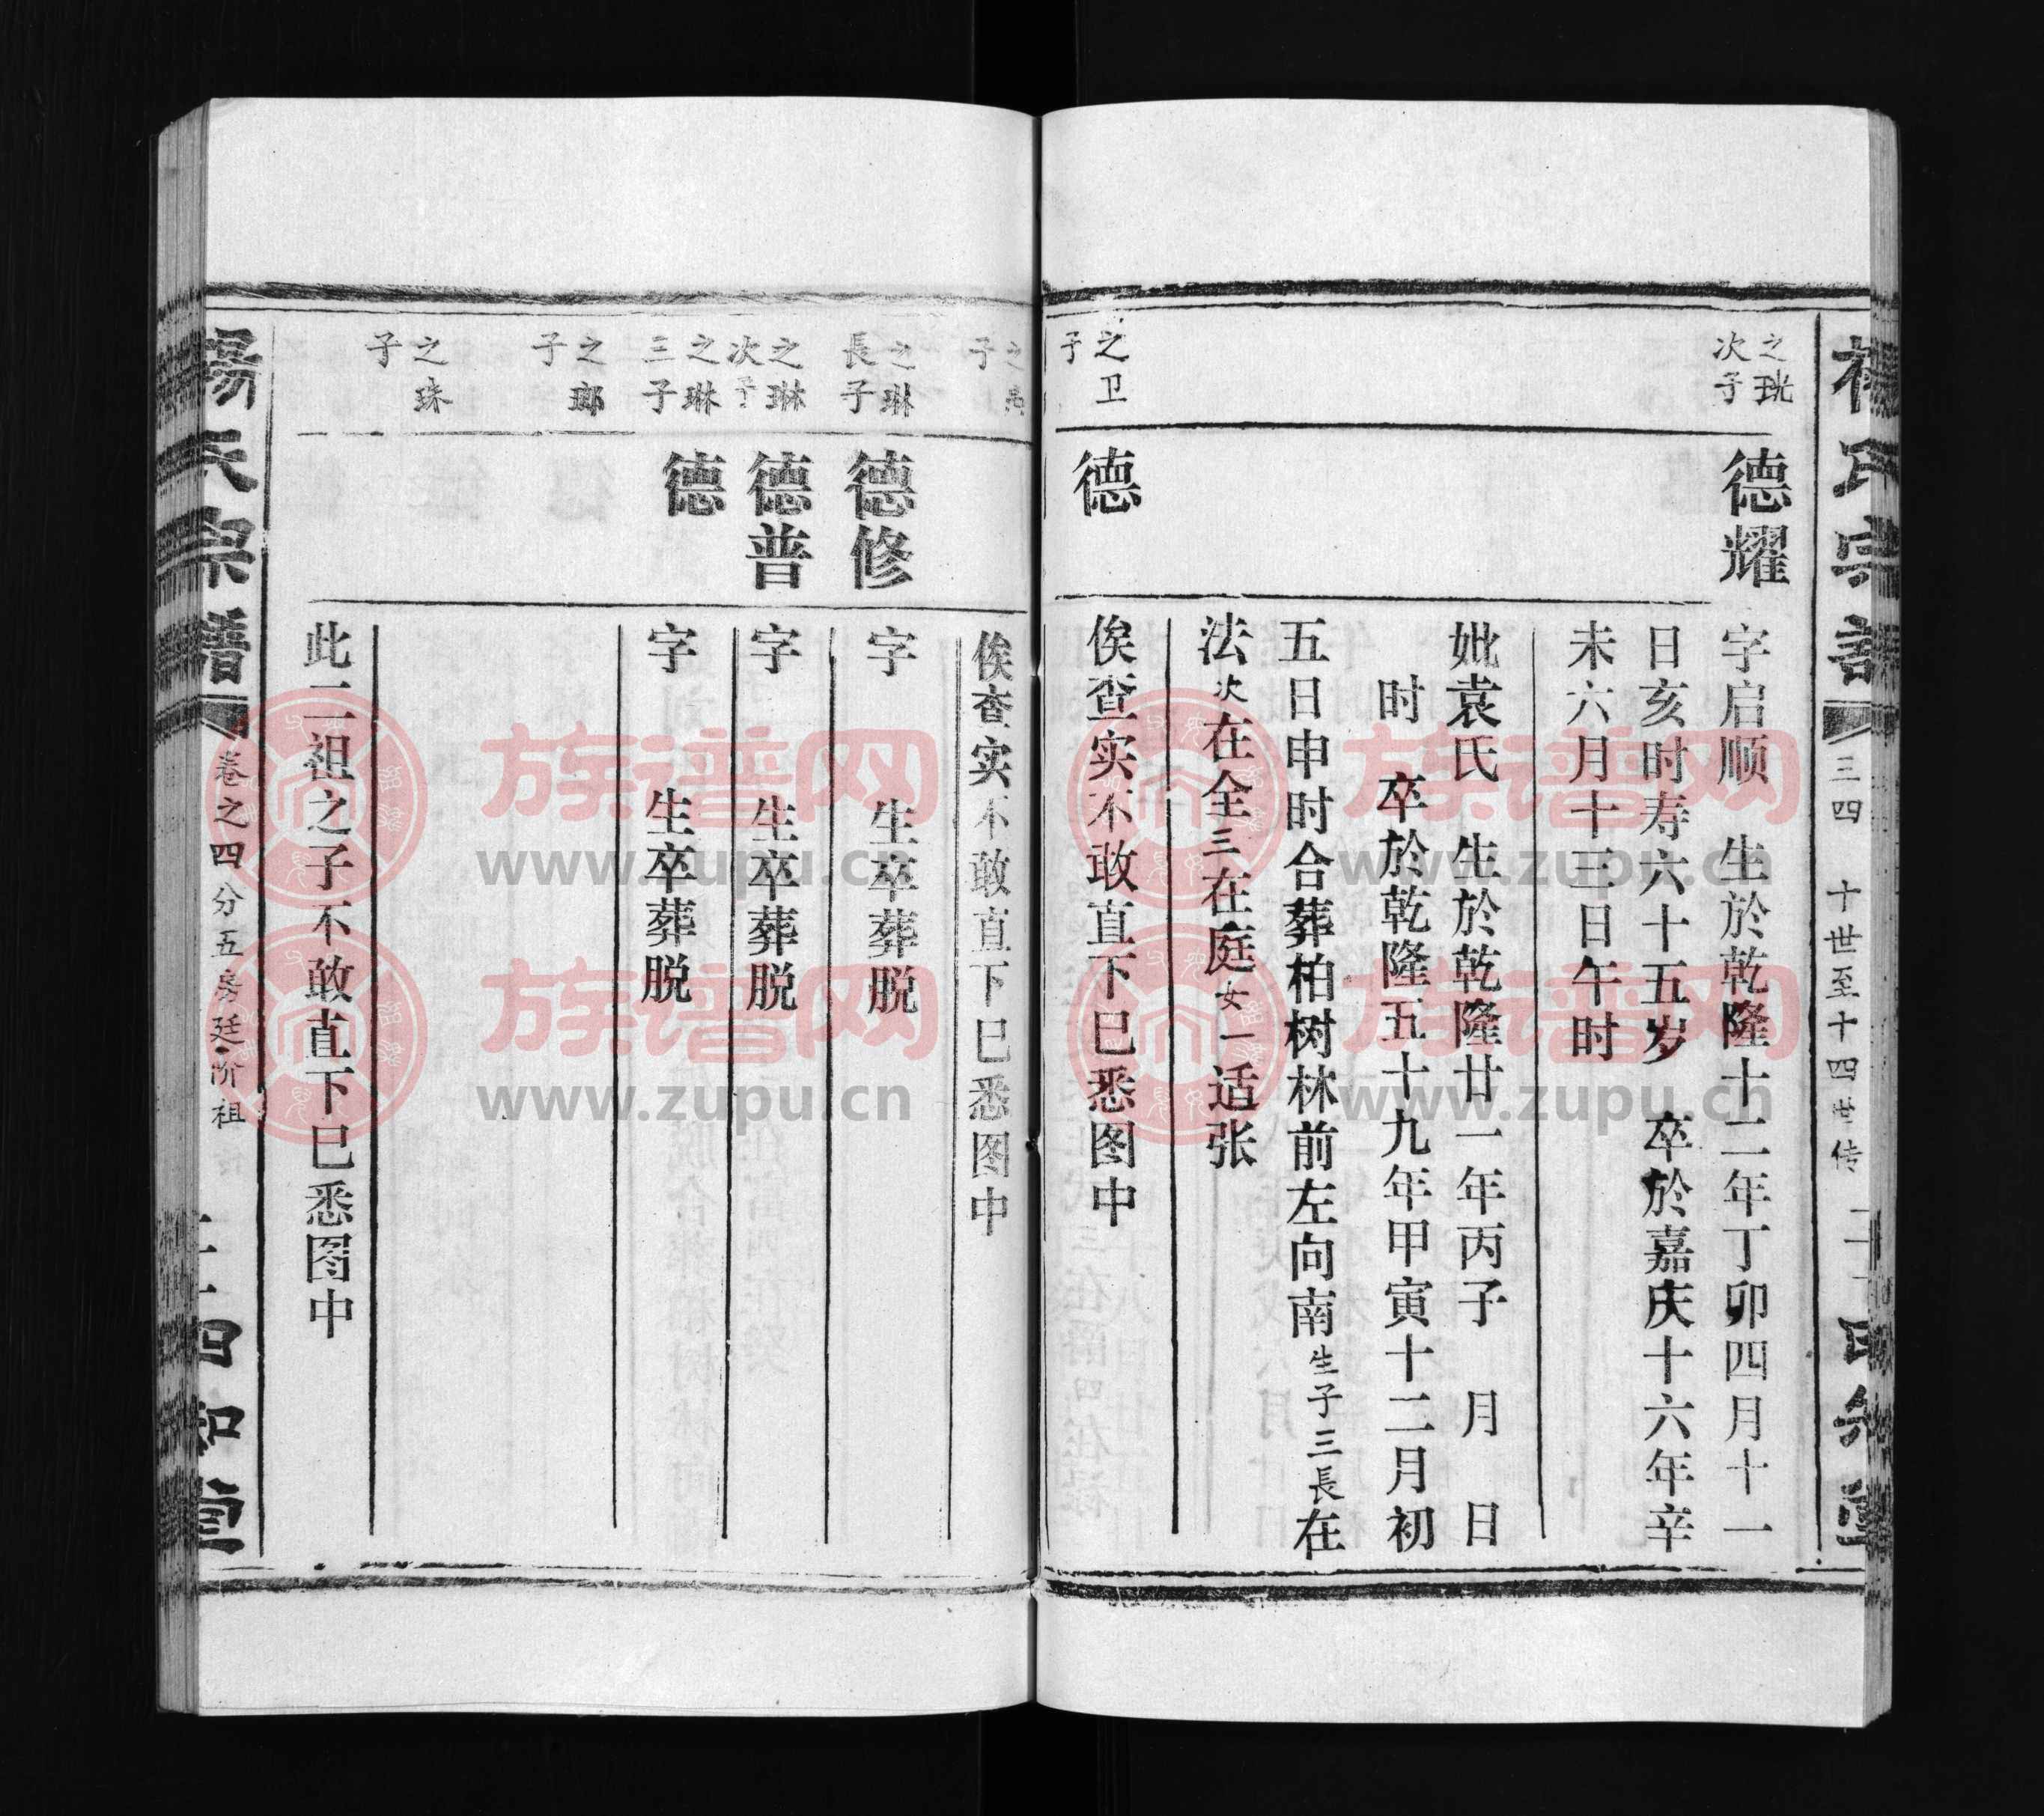 三四 十世至十四世传
之珖
次子
德耀
字启顺 生於乾隆十二年丁卯四月十一
日亥时寿六十五岁 卒於嘉庆十六年辛
未六月十三日午时
妣袁氏 生於乾隆廿一年丙子 月 日
时 卒於乾隆五十九年甲寅十二月初
五日申时合葬柏树林前左向南生子三長在
法次在全三在庭女一适张
之卫
子
德
俟查实不敢直下已悉图中
子
俟查实不敢直下已悉图中
之琳
長子
德修
字 生卒葬脱
之琳
次子
德普
字 生卒葬脱
之琳
三子
德
字 生卒葬脱
之瑯
子
之珠
子
此二祖之子不敢直下已悉图中
楊氏宗譜
卷之四分五房廷阶祖
四知堂
族谱网
www.zupu.cn
族谱网
www.zupu.cn
族谱网
www.zupu.cn
族谱网
www.zupu.cn